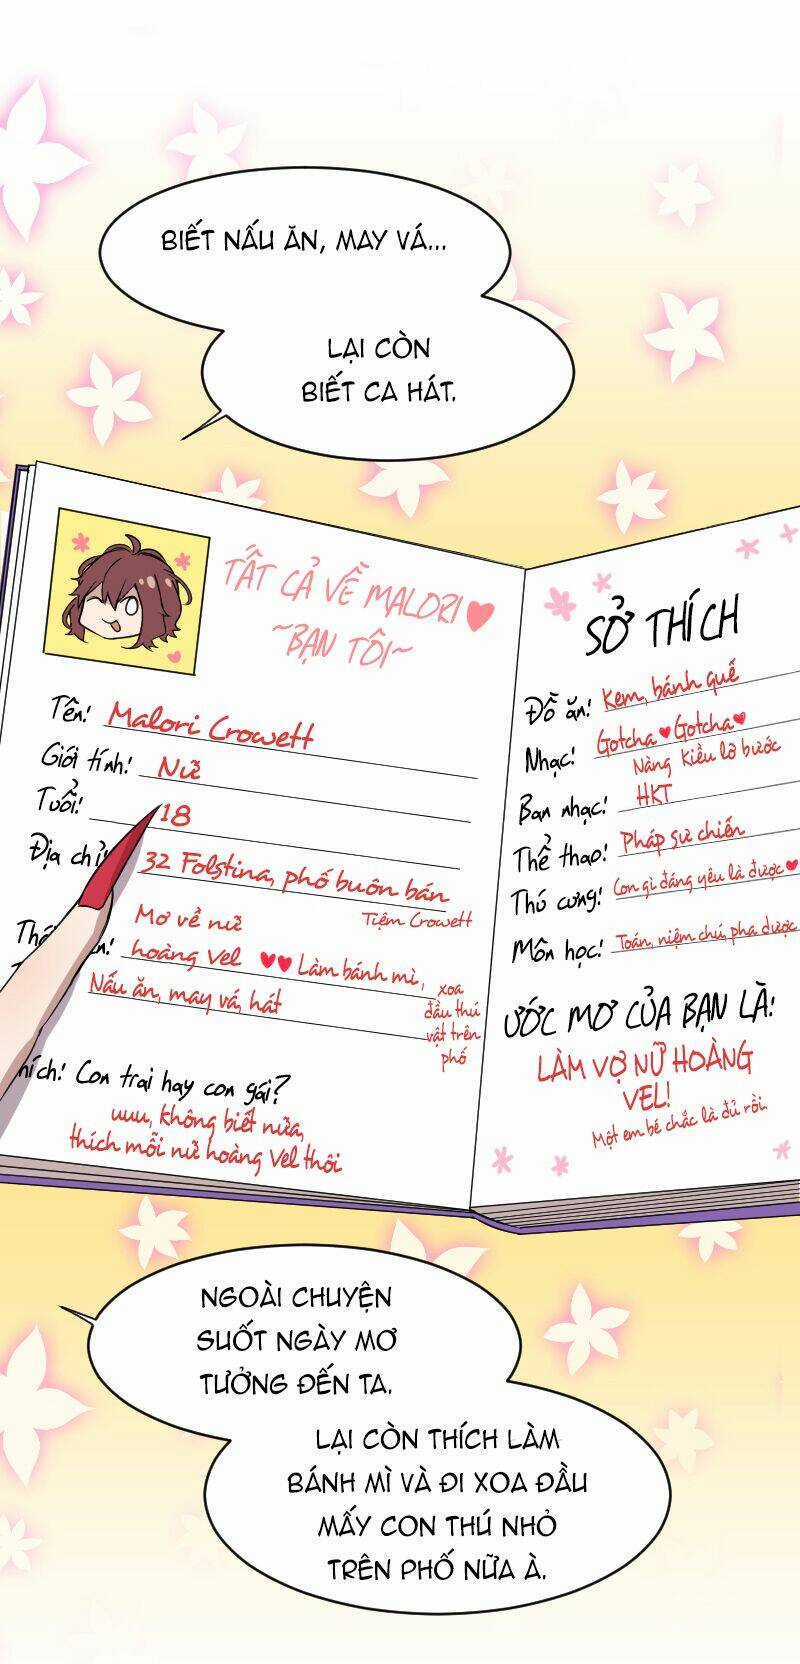 BIẾT NẤU ĂN, MAY VÁ...
LẠI CÒN
BIẾT CA HÁT.
TẤT CẢ VỀ MALORI
~BẠN TÔI~
Tên: Malori Crowett
Giới tính: Nữ
Tuổi: 18
Địa chỉ: 32 Folstina, phố buôn bán
Tiệm Crowett
Mơ về nữ
hoàng Vel ♥♥ Làm bánh mì,
Nấu ăn, may vá, hát
xoa
đầu thú
vật trên
phố
Con trai hay con gái?
uuu, không biết nữa,
thích mỗi nữ hoàng Vel thôi
SỞ THÍCH
Đồ ăn: Kem, bánh quế
Nhạc: Gotcha♥Gotcha♥
Nàng Kiều lỡ bước
Ban nhạc: HKT
Thể thao: Pháp sư chiến
Thú cưng: Con gì đáng yêu là được♥
Môn học: Toán, niệm chú, pha dược
ƯỚC MƠ CỦA BẠN LÀ:
LÀM VỢ NỮ HOÀNG
VEL!
Một em bé chắc là đủ rồi.
NGOÀI CHUYỆN
SUỐT NGÀY MƠ
TƯỞNG ĐẾN TA.
LẠI CÒN THÍCH LÀM
BÁNH MÌ VÀ ĐI XOA ĐẦU
MẤY CON THÚ NHỎ
TRÊN PHỐ NỮA À.